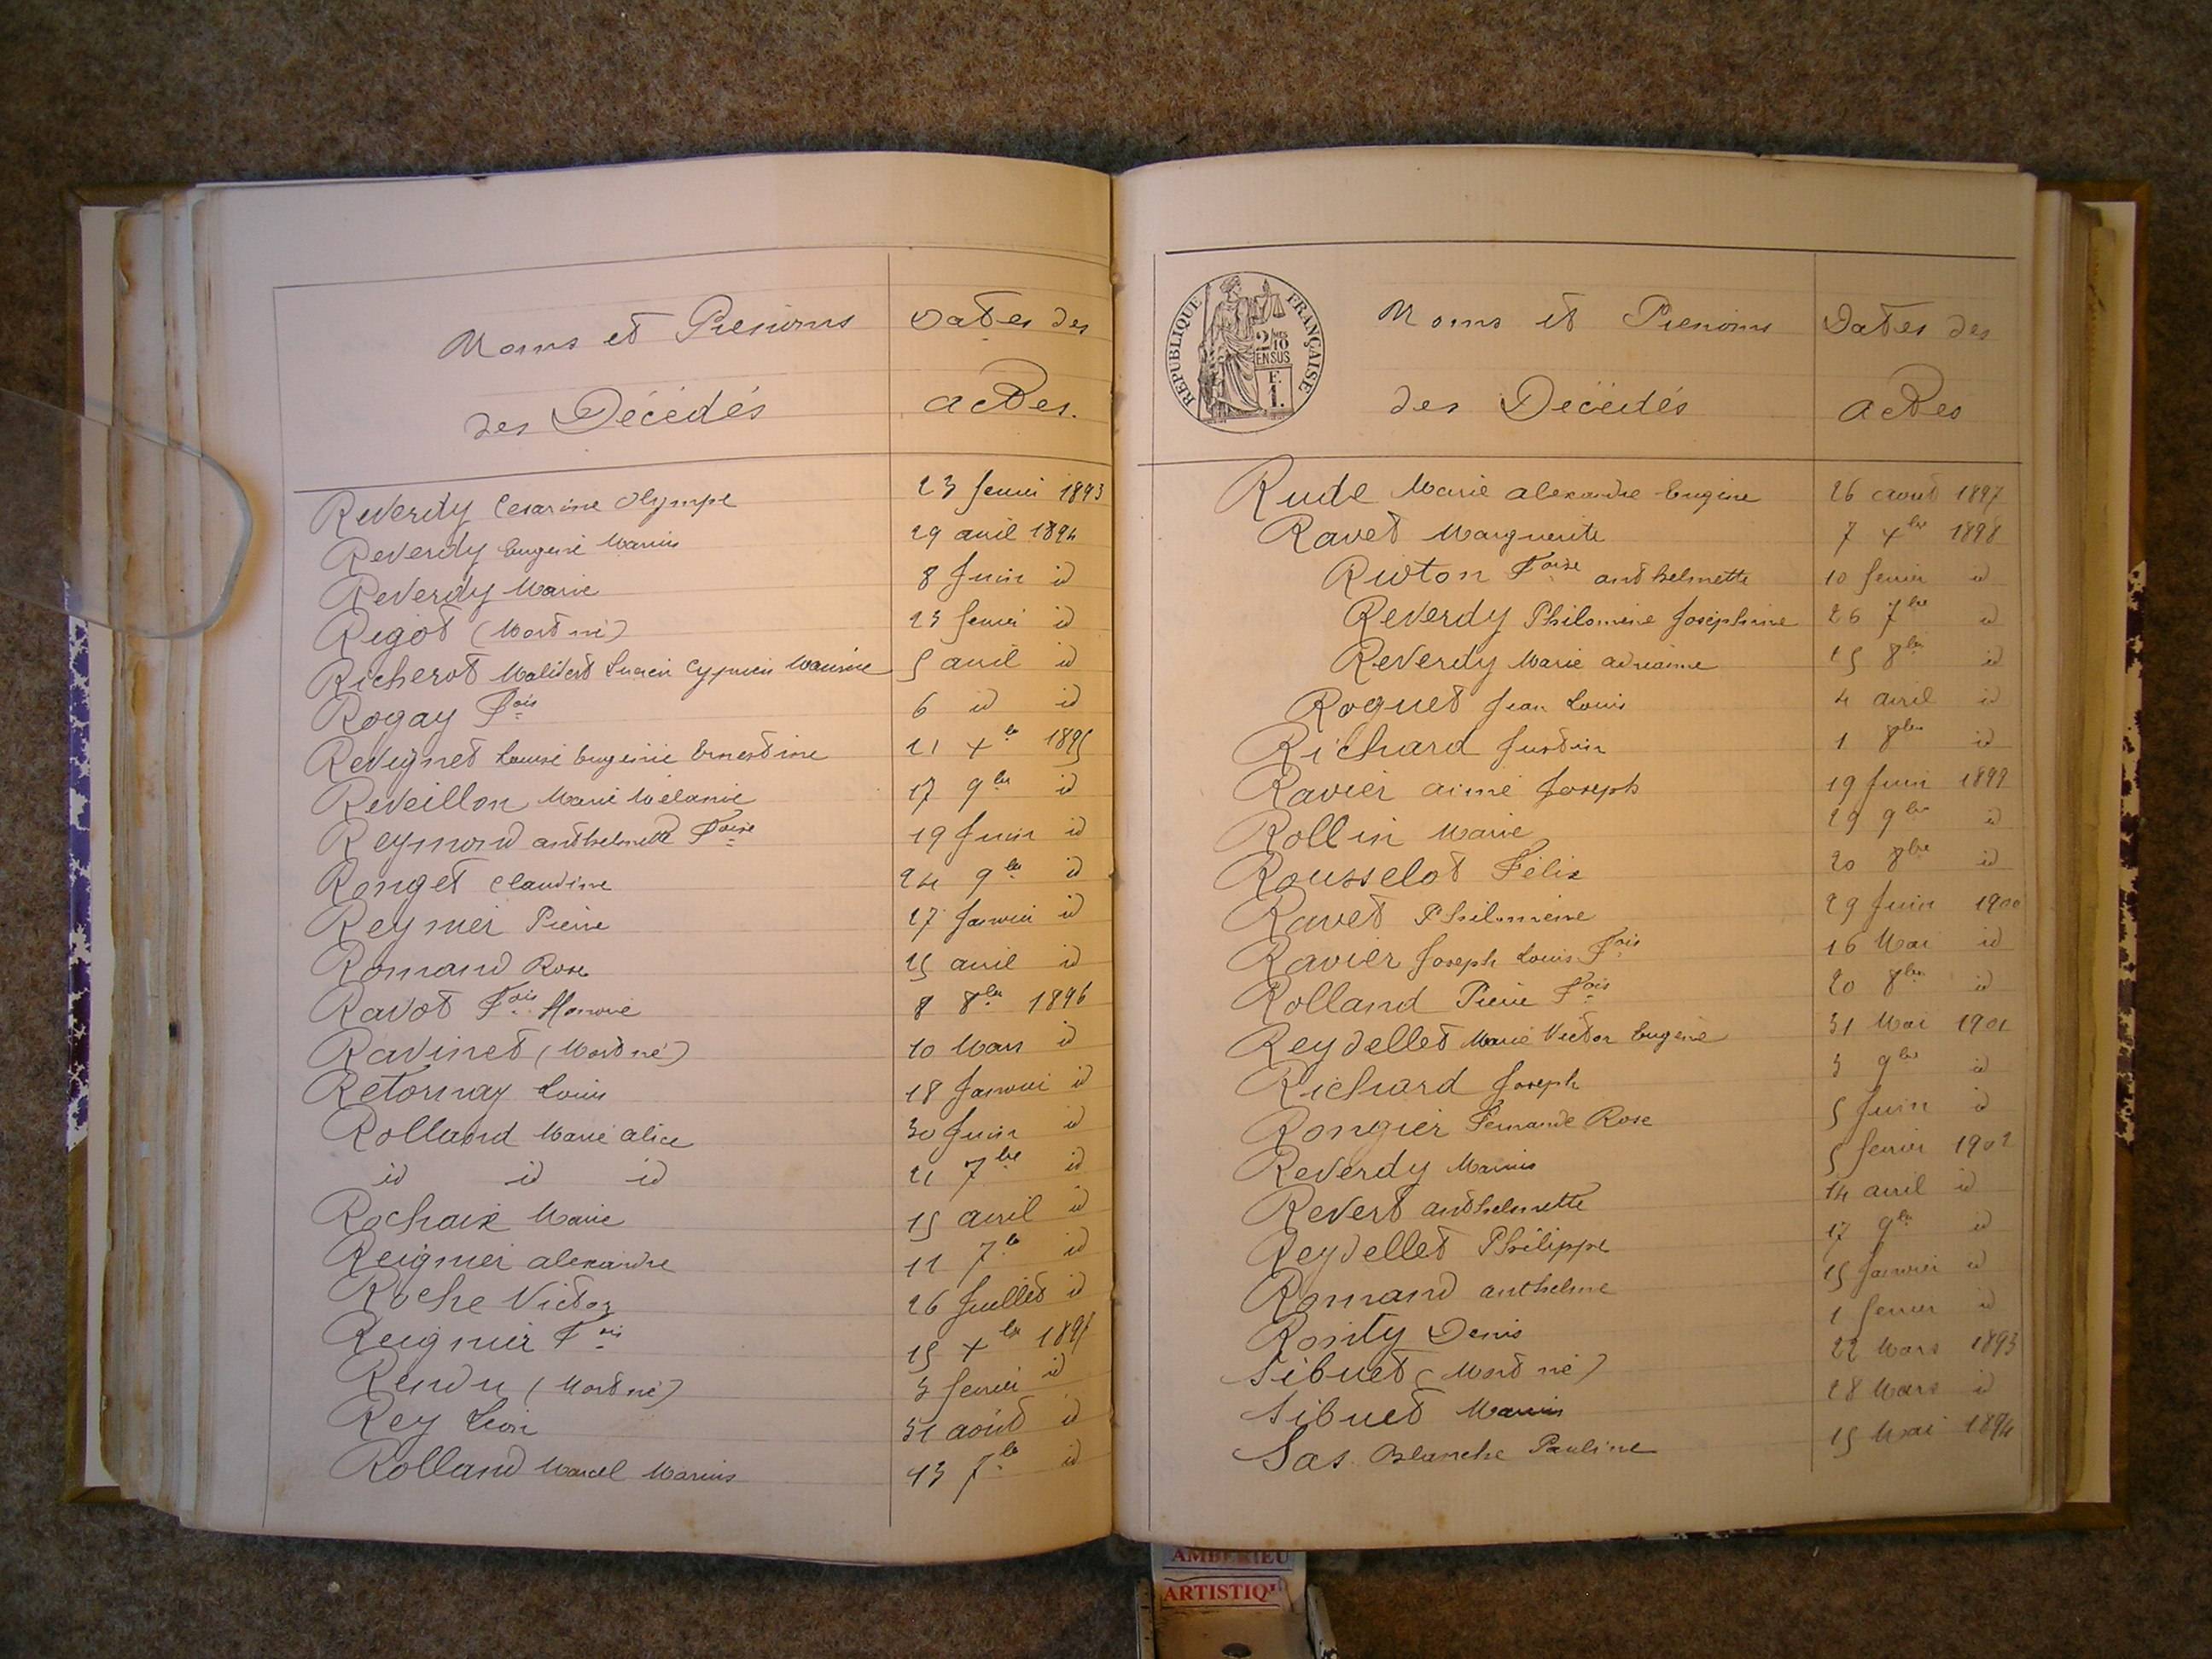 Noms et Prenoms
des Décédés
Dates des
actes.
Reverdy Cesarine Olympe 23 fevrier 1893
Reverdy Eugene Marius 29 avril 1894
Reverdy Marie 8 Juin id
Rigot (Mort né) 23 fevrier id
Richerot Lucien Cyprien Maurice 5 avril id
Rogay Fois 6 id id
Revignet Louise Eugenie Ernestine 21 Xbre 1895
Reveillon Marie Melanie 17 9bre id
Reymond anthelmette Foise 19 Juin id
Ronget Claudine 24 9bre id
Reynier Pierre 27 Janvier id
Romand Rose 25 avril id
Ravot Fois Honoré 8 8bre 1896
Ravinet (Mort né) 10 Mars id
Retornay Louis 18 Janvier id
Rolland Marie alice 30 Juin id
id id id 21 7bre id
Rochaix Marie 15 avril id
Reignier alexandre 11 7bre id
Roche Victor 26 Juillet id
Reignier Fois 15 Xbre
Rendu (Mort né) 3 fevrier id
Rey Léon 31 août id
Rolland Marcel Marius 13 7bre id
RÉPUBLIQUE FRANÇAISE
2/10 EN SUS
F. 1.
Noms et Prenoms
des Décédés
Dates des
actes
Rude Marie alexandre Eugène 26 aout 1897
Ravet Marguerite 7 Xbre 1898
Rivton Foise anthelmette 10 fevrier id
Reverdy Philomène Joséphine 26 7bre id
Reverdy Marie adrianne 15 8bre id
Roguet Jean Louis 4 avril id
Richard Justin 1 8bre id
Ravier aimé Joseph 19 Juin 1899
Rollin Marie 29 9bre id
Rousselot Félix 20 8bre id
Ravet Philomène 29 Juin 1900
Ravier Joseph Louis Fois 16 Mai id
Rolland Pierre Fois 20 8bre id
Reydellet Marie Victor Eugène 31 Mai 1901
Richard Joseph 3 9bre id
Rongier Fernande Rose 5 Juin id
Reverdy Marius 5 fevrier 1902
Revert anthelmette 14 avril id
Reydellet Philippe 17 9bre id
Romand anthelme 15 Janvier id
Ronity Denis 1 fevrier id
Sibuet (Mort né) 22 Mars 1893
Sibuet Marius 28 Mars id
Sas Blanche Pauline 15 Mai 1894
AMBERIEU
ARTISTIQU